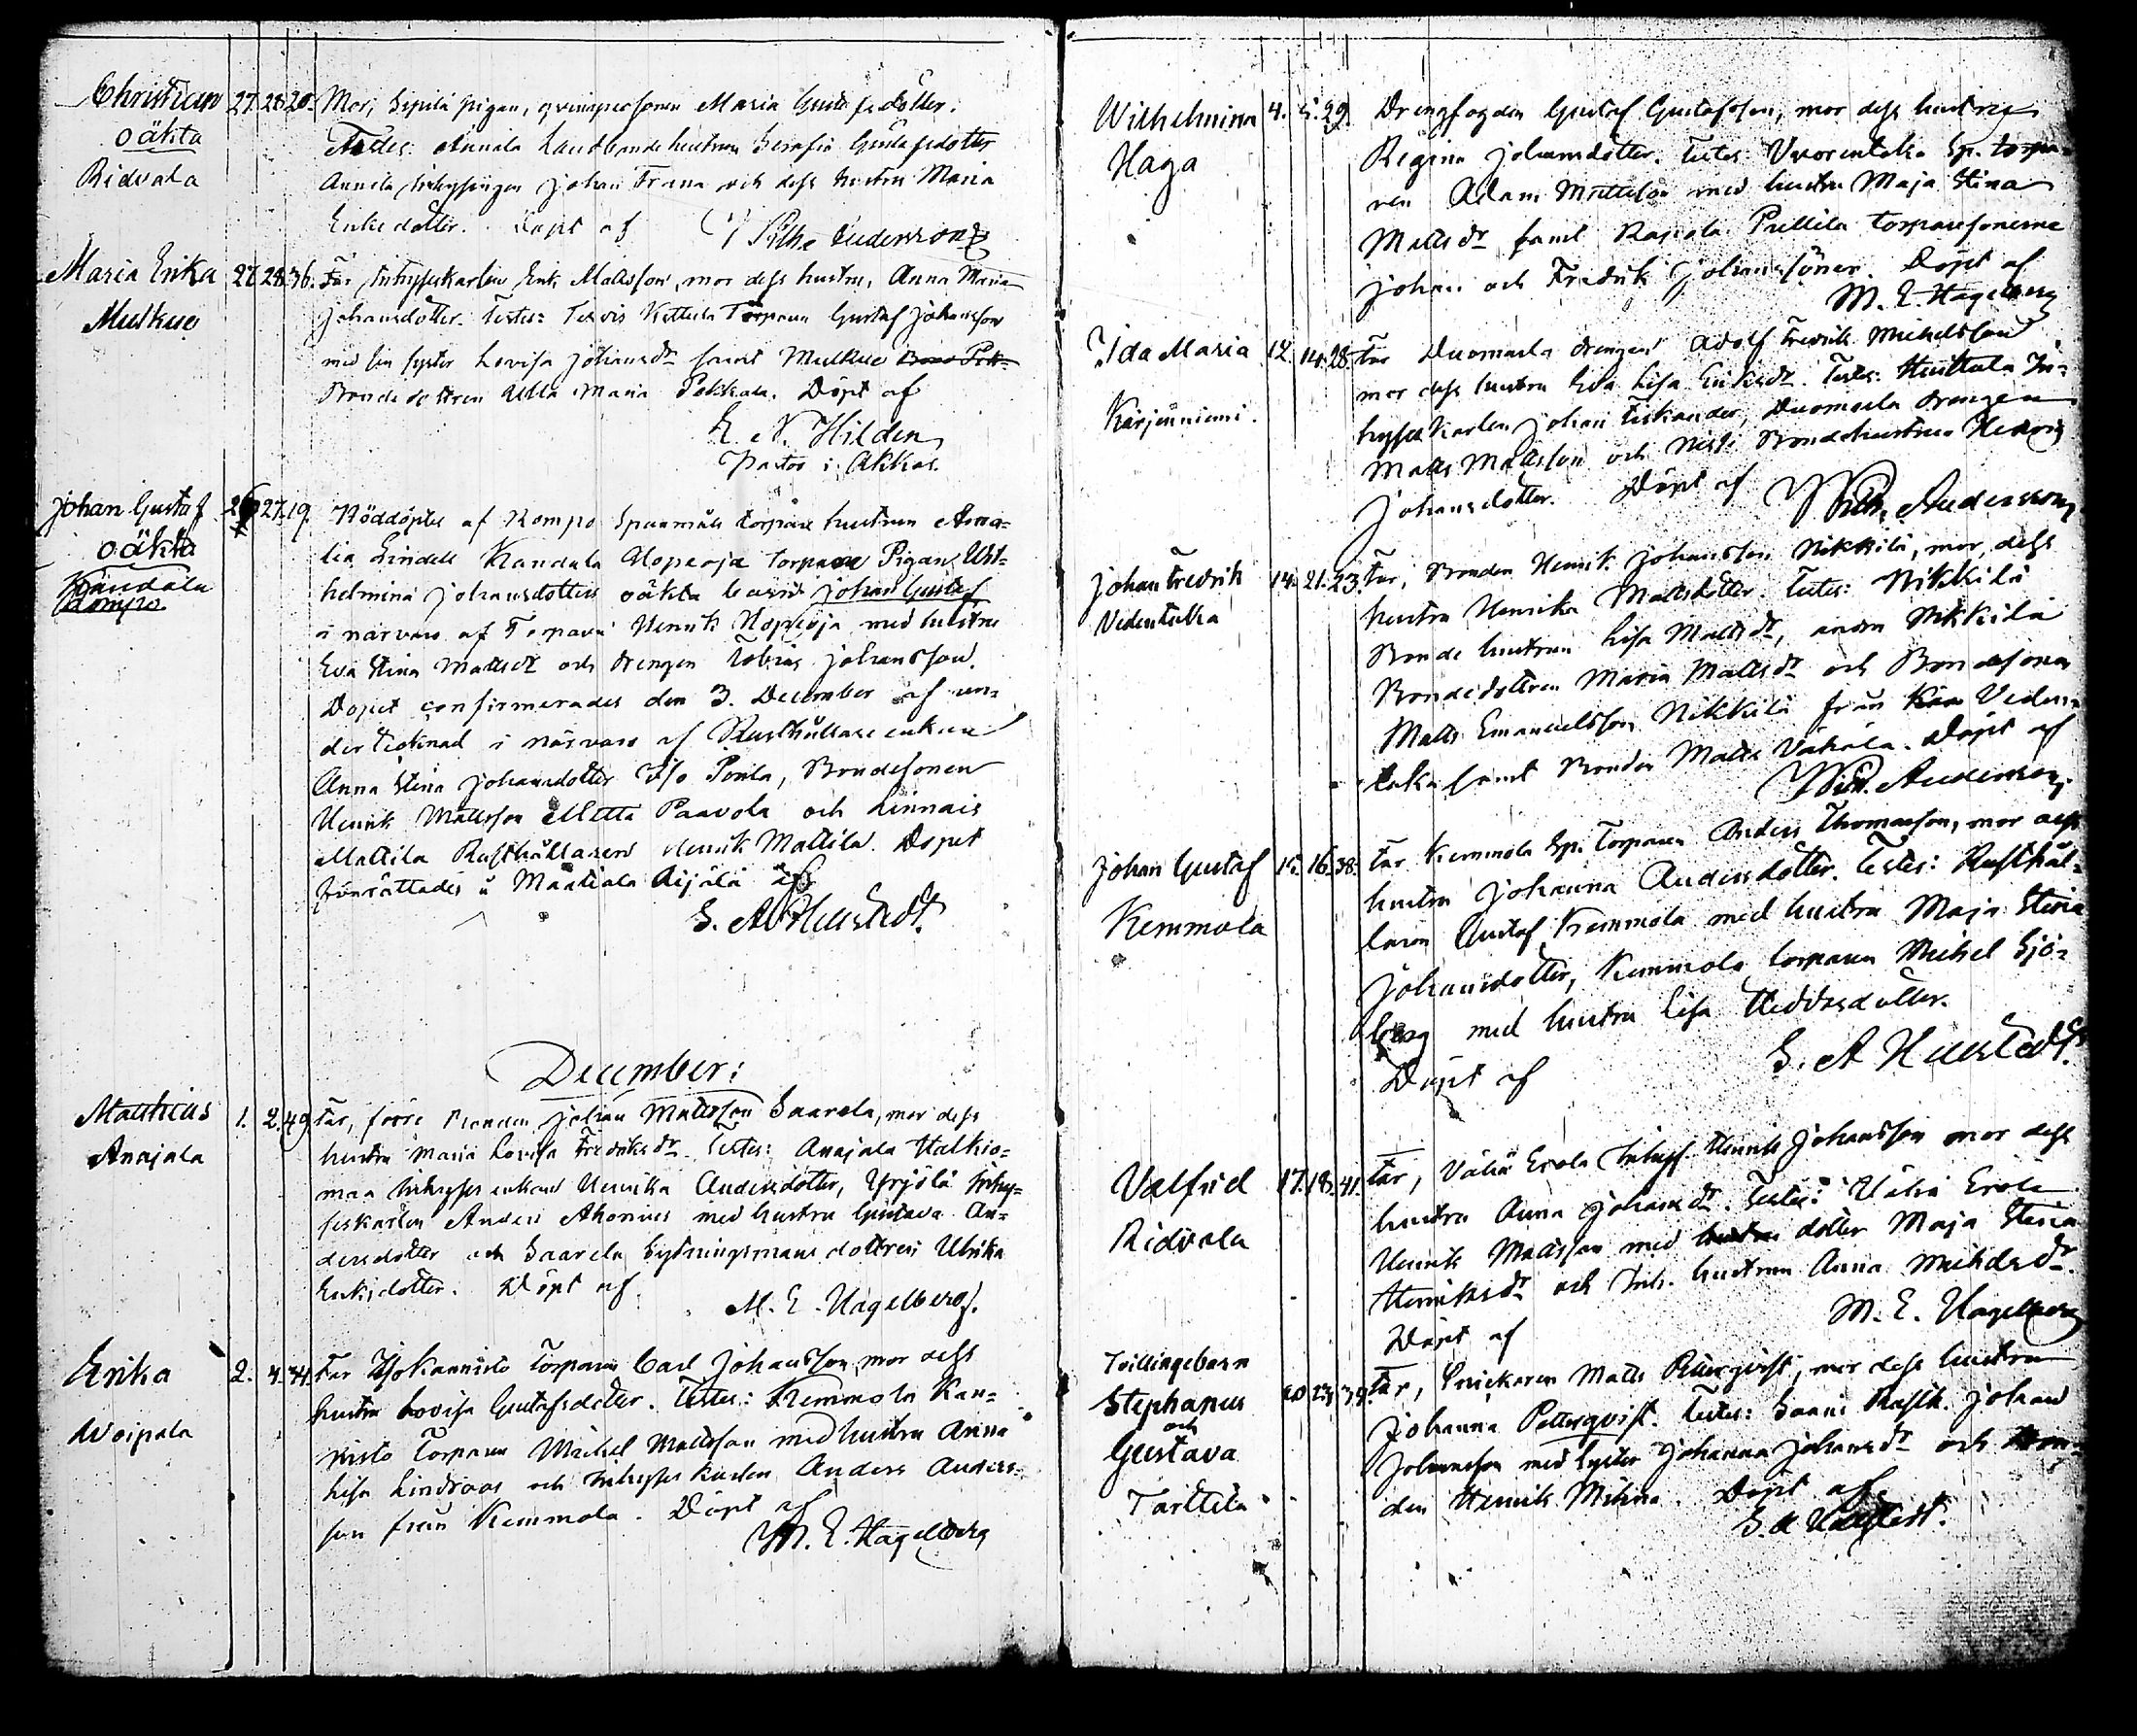 Christian 27. 28. 20. Mor, Sipilä pigan, qvinspersonen Maria Gustafsdotter.
oäkta Testes: Annala Landbondehustrun Serafia Gustafsdotter
Ridvala Annila Inhysingen Johan Frana och dess hustru Maria
Eriksdotter. Döpt af Wilh. Andersson
Maria Erika 27. 28. 36. Far, Inhyseskarlen Erik Mattsson, mor dess hustru, Anna Maria
Mulkue Johansdotter. Testes: Tervis Kettula Torparen Gustaf Johansson
med sin syster Lovisa Johansdr samt Mulkue
Bondedottren Ulla Maria Pekkala. Döpt af
E. N. Hilden
Pastor i Akkas.
Johan Gustaf 26. 27. 19. Nöddöptes af Rompo Spannmåls torpare hustrun Ama-
oäkta lia Lindell Kandala Hopeoja torpare Pigan Wil-
Kandala helmina Johansdotters oäkta barn Johan Gustaf
Rompo i närvaro af Torparen Henrik Hopeoja med hustru
Eva Stina Mattsdr och drengen Tobias Johansson.
Dopet confirmerades den 3. December af un-
dertecknad i närvaro af Rusthållare enkan
Anna Stina Johansdotter Iso Pentla, Bondesonen
Henrik Mattsson Metta Paavola och Linnais
Mattila Rusthållaren Henrik Mattila. Dopet
förrättades å Maatiala Äijälä af
G. A. Hellstedt.
December:
Matthias 1. 2. 49. Far, förre Bonden Johan Mattsson Saarela, mor dess
Anajala hustru Maria Lovisa Fredriksdr. Testes: Anajala Valkio-
maa Inhyses enkan Henrika Andersdotter, Yrjölä Inhy-
seskarlen Anders Ahonius med hustru Gustava An-
dersdotter och Saarela Sytningsmans dottren Ulrika
Eriksdotter. Döpt af
M. E. Hagelberg.
Erika 2. 4. 41. Far Yhokannisto Torparen Carl Johansson, mor dess
Woipala hustru Lovisa Gustafsdotter. Testes: Kemmola Kan-
nisto Torparen Michel Mattsson med hustru Anna
Lisa Lindroos och Inhyses karlen Anders Anders-
son från Kemmola. Döpt af
M. E. Hagelberg
Wilhelmina 4. 5. 29. Drengfogden Gustaf Gustafsson, mor dess hustru
Haga Regina Johansdotter. Testes: Vuorentaka Sp. torpa-
ren Adam Mattsson med hustru Maja Stina
Mattsdr samt Rapola Prellila torparesönerne
Johan och Fredrik Johanssöner. Döpt af
M. E. Hagelberg
Ida Maria 12. 14. 28. Far Duomarla drengen Adolf Fredrik Michelsson,
Kärjenniemi. mor dess hustru Eva Lisa Eriksdr. Testes: Huittula In-
hyses karlen Johan Fiskander, Duomarla drengen
Matts Mattsson och Bondehustrun Hedvig
Johansdotter. Döpt af Wilh. Andersson
Johan Fredrik 14. 21. 23. Far, Bonden Henrik Johansson Nikkilä, mor, dess
Vedentaka hustru Henrika Mattsdotter. Testes: Nikkilä
Bonde hustrun Lisa Mattsdr, andra Nikkilä
Bondedottren Maria Mattsdr och Bondesonen
Matts Emanuelsson Nikkilä från Veden-
taka samt Bonden Matts Vähälä. Döpt af
Wilh. Andersson.
Johan Gustaf 15. 16. 38. Far Kemmola Sp. Torparen Anders Thomasson, mor dess
Kemmola hustru Johanna Andersdotter. Testes: Rusthål-
laren Gustaf Kemmola med hustru Maja Stina
Johansdotter, Kemmola torparen Michel Sjö-
berg med hustru Lisa Heddasdotter.
Döpt af G. A Hellstedt.
Valfrid 17. 18. 41. Far, Vähä Erola Inhys. Henrik Johansson mor dess
Ridvala hustru Anna Johansdr. Testes: Vähä Erola
Henrik Mattsson med dotter Maja Stina
Henriksdr och Inh. hustrun Anna Michelsdr.
Döpt af M. E. Hagelberg
Tvillingebarn
Stephanus 20. 23. 39. Far, Snickaren Matts Petterqvist, mor dess hustru
och Johanna Petterqvist. Testes: Saari Rusth. Johan
Gustava Johansson med syster Johanna Johansdr och Bon-
Tarttila den Henrik Mikna. Döpt af
G. A Hellstedt.